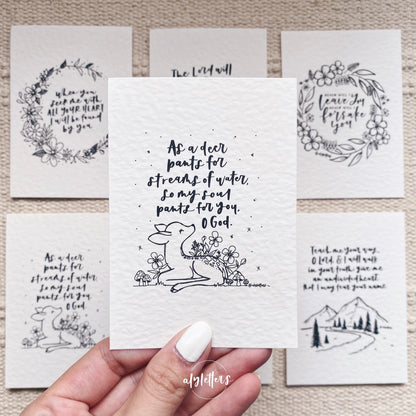 When you
seek me with
ALL YOUR HEART
I will be found
by you.
The Lord will
NEVER WILL I
leave you
NEVER WILL I
forsake
you
As a deer
pants for
streams of water,
so my soul
pants for you,
O God.
As a deer
pants for
streams of water,
so my soul
pants for you,
O God.
Teach me your way,
O Lord, & I will walk
in your truth; give me
an undivided heart,
that I may fear your name.
alyletters